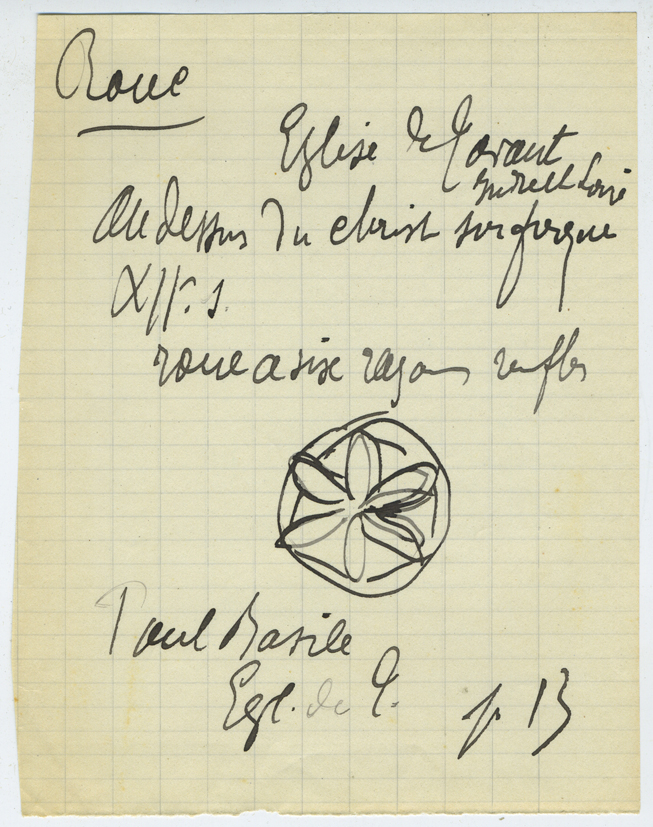 Roue
Eglise de Tavant
Indre et Loire
Au dessus du Christ sur
XII. s.
roue a six rayons renfles
Paul Basile
Egl. de T. p. 13